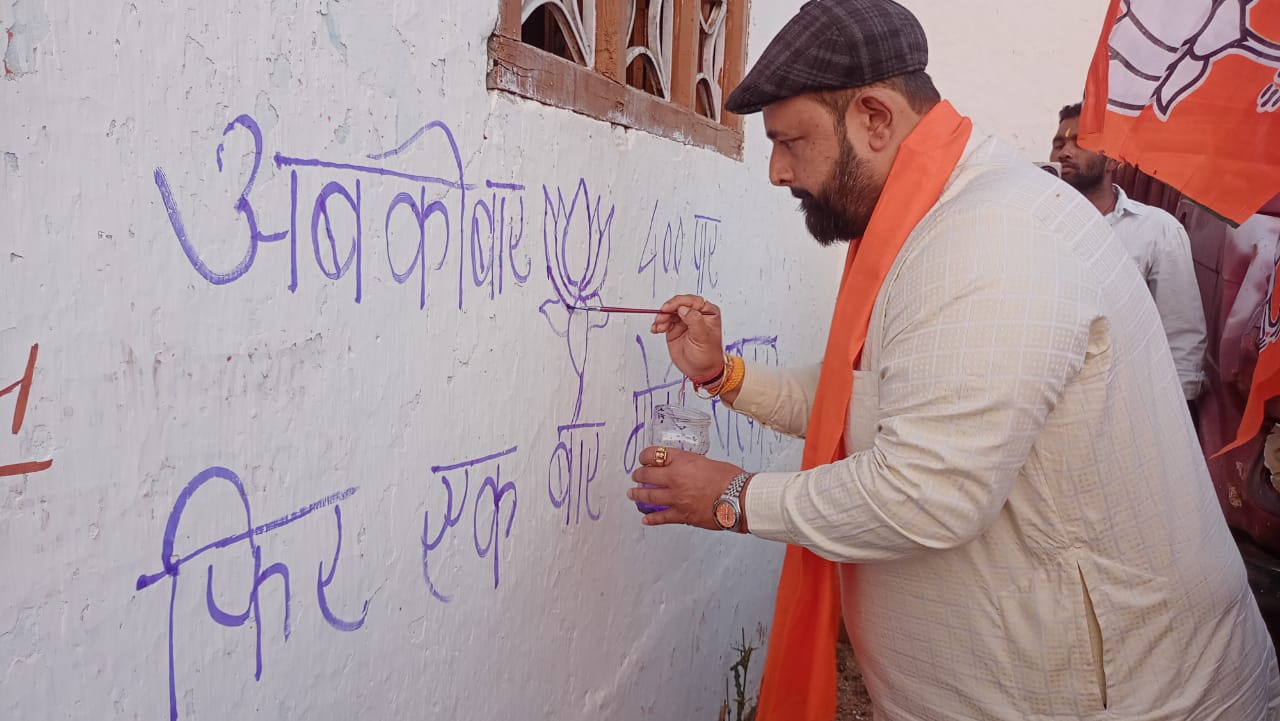 अबकी बार 400 पार
फिर एक बार